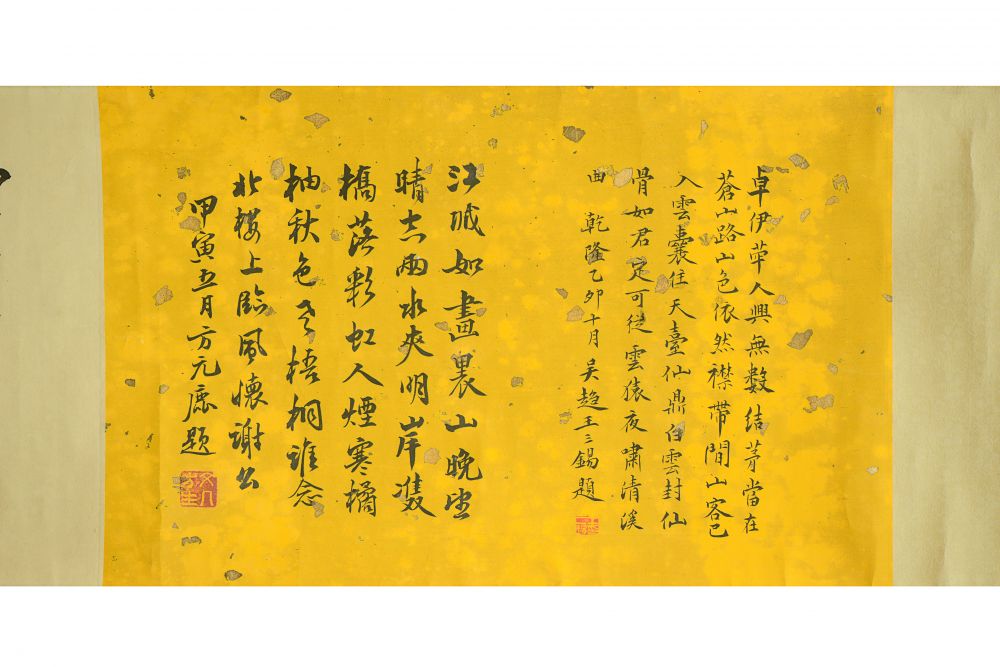 卓伊葷人興無數結茅當在
蒼山路山色依然襟帶間山客已
入雲囊住天臺仙鼎白雲封仙
骨如君定可從雲猿夜嘯清溪
曲 乾隆乙卯十月吳趨王三錫題
江城如畫裏山晚望
晴空兩水夾明岸雙
橋落彩虹人煙寒橘
柚秋色老梧桐誰念
北樓上臨風懷謝公
甲寅五月方元鹿題